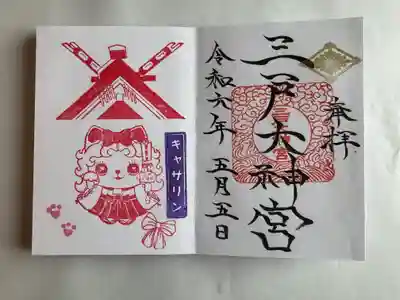 奉拝
三戸大神宮
令和六年 五月五日
キャサリン